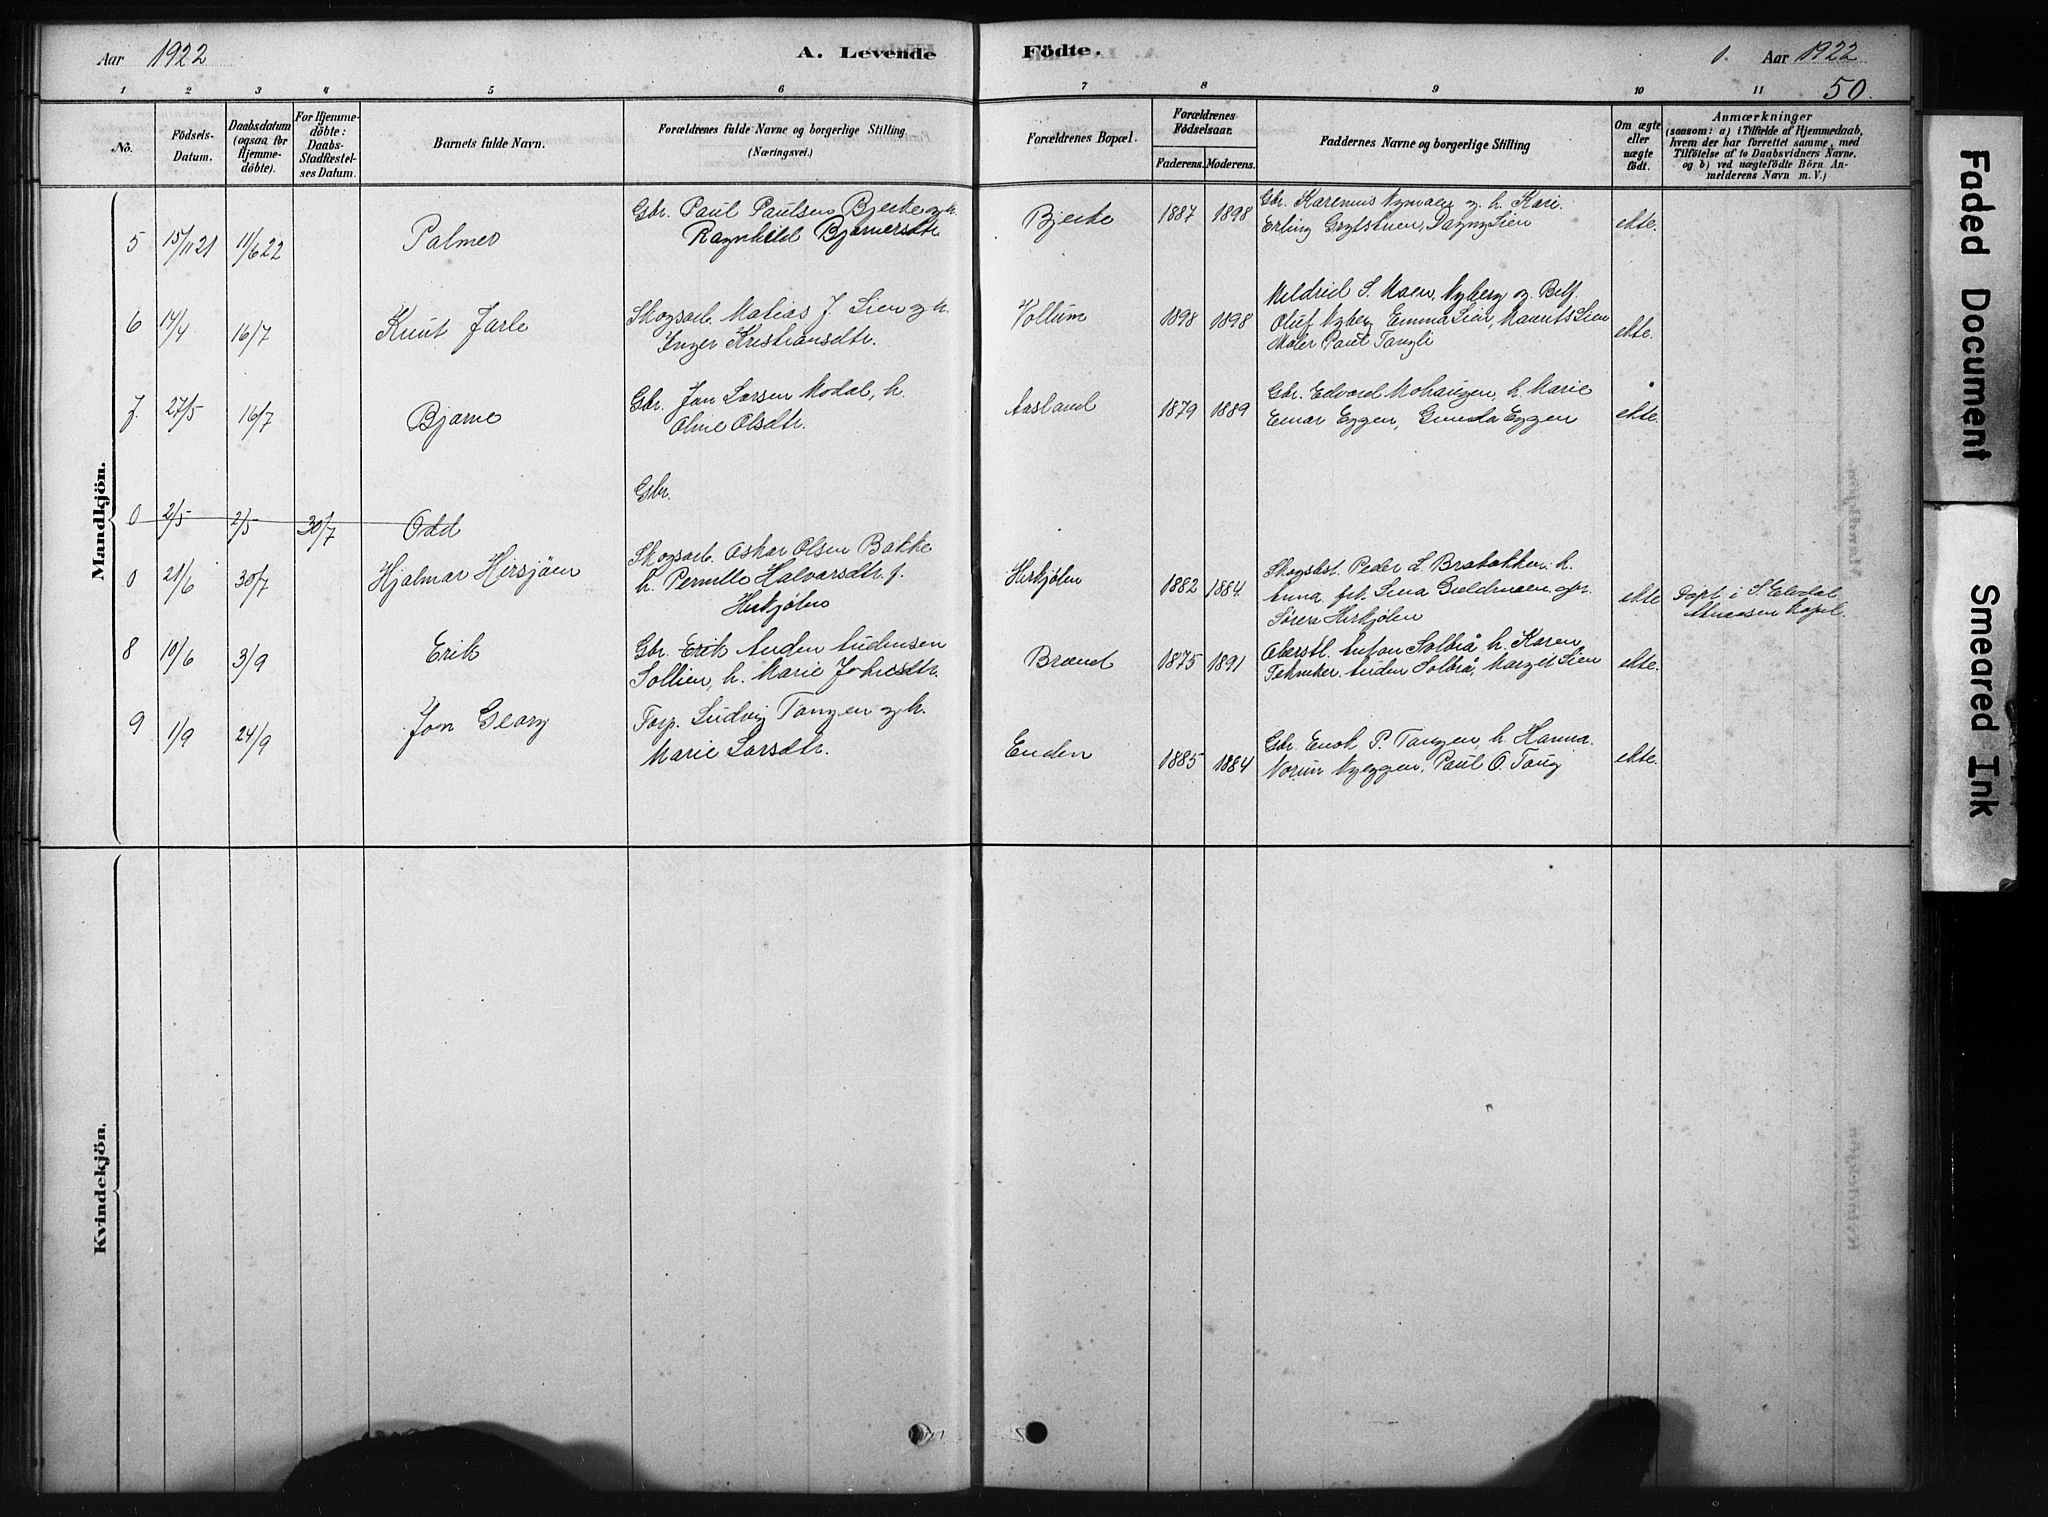 Aar 1922
A. Levende
Födte.
1. Aar 1922
50.
1 2 3 4 5 6 7 8 9 10 11
No.
Födsels-Datum.
Daabsdatum (ogsaa for Hjemmedöbte).
For Hjemmedöbte: Daabs-Stadfæstelses Datum.
Barnets fulde Navn.
Forældrenes fulde Navne og borgerlige Stilling (Næringsvei.)
Forældrenes Bopæl.
Forældrenes Födselsaar.
Faderens. Moderens.
Faddernes Navne og borgerlige Stilling
Om ægte eller uægte födt.
Anmærkninger
(saasom: a) i Tilfælde af Hjemmedaab,
hvem der har forrettet samme, med
Tilföielse af to Daabsvidners Navne.
og b) ved uægtefödte Börn An-
melderens Navn m. V.)
Mandkjön.
5 15/11 21 11/6 22 Palmer
Gbr. Paul Paulsen Bjerke og h.
Ragnhild Bjarnersdtr
Bjerke 1887 1898
Gbr. Karenius Nymoen og h. Kari.
Erling Grytstuen, Dagny Lien
ekte.
6 14/4 16/7 Knut Jarle
Skogsarb. Matias J. Lien og h.
Inger Kristiansdtr.
Vollum 1898 1898
Mildrid S. Moen, Nyberg og Belf.
Oluf Nyberg Emma Lien, Maurits Lien
Maler Paul Tangli
ekte.
7. 27/5 16/7 Bjarne
Gbr. Jon Larsen Modal, h.
Oline Olsdtr.
Aasland 1879 1889
Gbr. Edvard Mohaugen, h. Marie
Einar Eggen, Gunda Eggen
ekte.
0 2/5 2/5 30/7 Odd
Gbr.
0 21/6 30/7 Hjalmar Hirsjøen
Skogsarb. Oskar Olsen Bakke
h. Pernille Halvarsdtr. f.
Hirkjølen
Hirkjølen 1882 1884.
Skogsbst. Peder L. Bratbakken h.
Anna
Søren Hirkjølen
ekte
Døpt i S. Elvdal
8 10/6 3/9 Erik
Gbr. Erik Auden Audensen
Sollien, h. Marie Johnsdtr.
Brænd 1875 1891
Oberstl. Anton Solbrå h. Karen
Tekniker. Auden Solbrå, Margit Lien
ekte.
9 1/9 24/9 Jon Georg
Forp. Ludvig Tangen og h.
Marie Larsdtr.
Enden 1885 1884
Gbr. Enok P. Tangen, h. Hanna.
Norun Nyeggen, Paul O. Tang
ekte.
Kvindekjön.
Faded Document
Smeared Ink